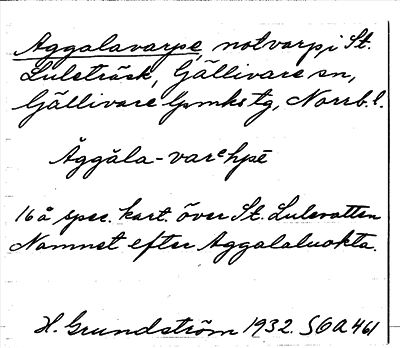 Aggalavarpe, notvarp i St.
Luleträsk, Gällivare sn,
Gällivare lpmks tg, Norrb. l.
Åggåla-varᵉhpē
16 å spec. kart. över St. Lulevatten
Namnet efter Aggalaluokta.
H. Grundström 1932. SOA 461